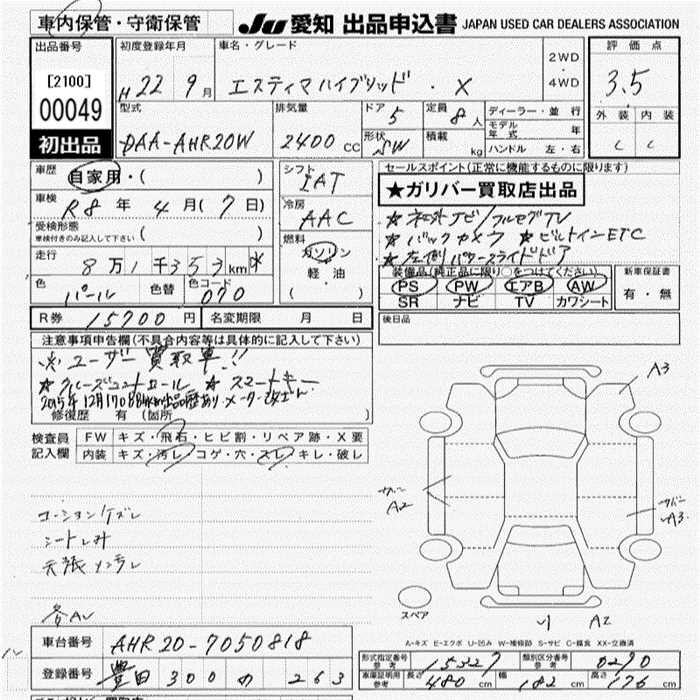 車内保管・守衛保管 JU 愛知 出品申込書 JAPAN USED CAR DEALERS ASSOCIATION
出品番号 初度登録年月 車名・グレード 2WD・4WD 評価点
[2100] H 22 9月 エスティマハイブリッド・X 3.5
00049
型式 排気量 ドア 5 定員 8人 ディーラー・並行 外装 内装
DAA-AHR20W 2400cc 形状 SW 積載 kg モデル年式 年 C C
初出品 ハンドル 左・右
車歴 自家用・( ) シフト IAT セールスポイント(正常に機能するものに限ります)
★ガリバー買取店出品
車検 R8年 4月(7日) 冷房 AAC
★ネオットナビ/フルセグTV
受検形態 ( )
車検付きのみ記入して下さい
★バックカメラ ★ビルトインETC
走行 8万1千353km 燃料 ガソリン
★左側パワースライドドア
軽油
( )
色 パール 色替 色コード 070
装備品(純正品に限り○をつけてください) 新車保証書
PS PW エアB AW 有・無
SR ナビ TV カワシート
R券 15700円 名変期限 月 日 後日品
注意事項申告欄(不具合内容等は具体的に記入して下さい)
※ユーザー買取車!!
★クルーズコントロール ★スマートキー
修復歴 有 (箇所 )
検査員 FW キズ・飛石・ヒビ割・リペア跡・X要
記入欄 内装 キズ・汚レ・コゲ・穴・スレ・キレ・破レ
A3
A2
A3
シートしみ
スペア
A2
A-キズ E-エクボ U-凹み W-補修跡 S-サビ C-腐食 XX-交換済
車台番号 AHR20-7050818
登録番号 豊田 300 の 263
形式指定番号 参考 15327 類別区分番号 参考 0290
車庫証明用 参考 長さ 480cm 幅 182cm 高さ 176cm